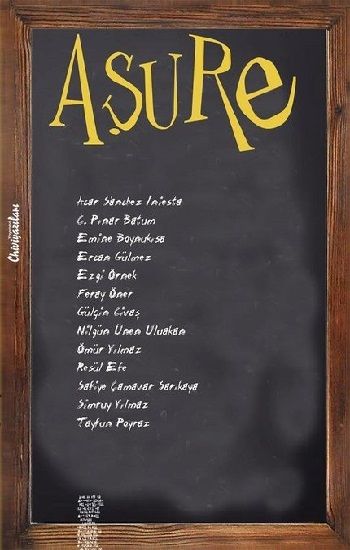 AŞURe
Acar Sanchez Iniesta
G. Pınar Batum
Emine Boynukısa
Ercan Gülmez
Ezgi Örnek
Feray Öner
Gülçin Civaş
Nilgün Ünen Uluakan
Ömür Yılmaz
Resül Efe
Safiye Çamavar Sarıkaya
Simruy Yılmaz
Taylun Poyraz
Chiviyazıları